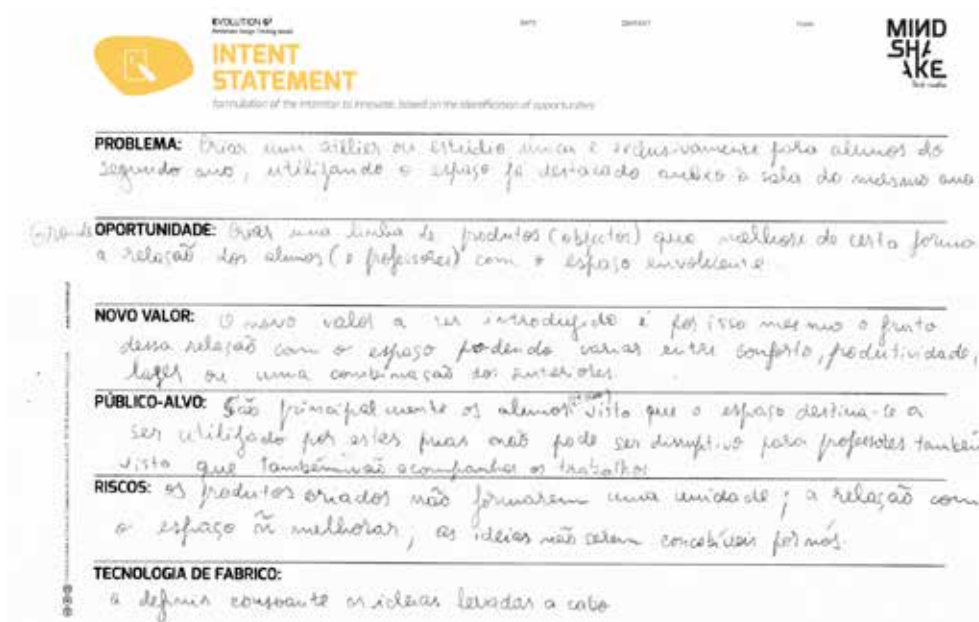 EVOLUTION 6²
DATE
CONTEXT
TEAM
MINDSHAKE
INTENT
STATEMENT
formulation of the intention to innovate, based on the identification of opportunities
PROBLEMA: Criar um atêlier ou estúdio única e exclusivamente para alunos do
segundo ano, utilizando o espaço já destacado anexo à sala do mesmo ano
OPORTUNIDADE: Criar uma linha de produtos (objectos) que melhore de certa forma
a relação dos alunos (e professores) com o espaço envolvente
NOVO VALOR: O novo valor a ser introduzido é por isso mesmo o fruto
dessa relação com o espaço podendo variar entre conforto, produtividade,
lazer ou uma combinação dos anteriores.
PÚBLICO-ALVO: São principalmente os alunos visto que o espaço destina-se a
ser utilizado por estes mas não pode ser disruptivo para professores também
visto que também irão acompanhar os trabalhos
RISCOS: Os produtos criados não formarem uma unidade; a relação com
o espaço ñ melhorar; as ideias não serem concebíveis por nós.
TECNOLOGIA DE FABRICO:
a definir consoante as ideias levadas a cabo